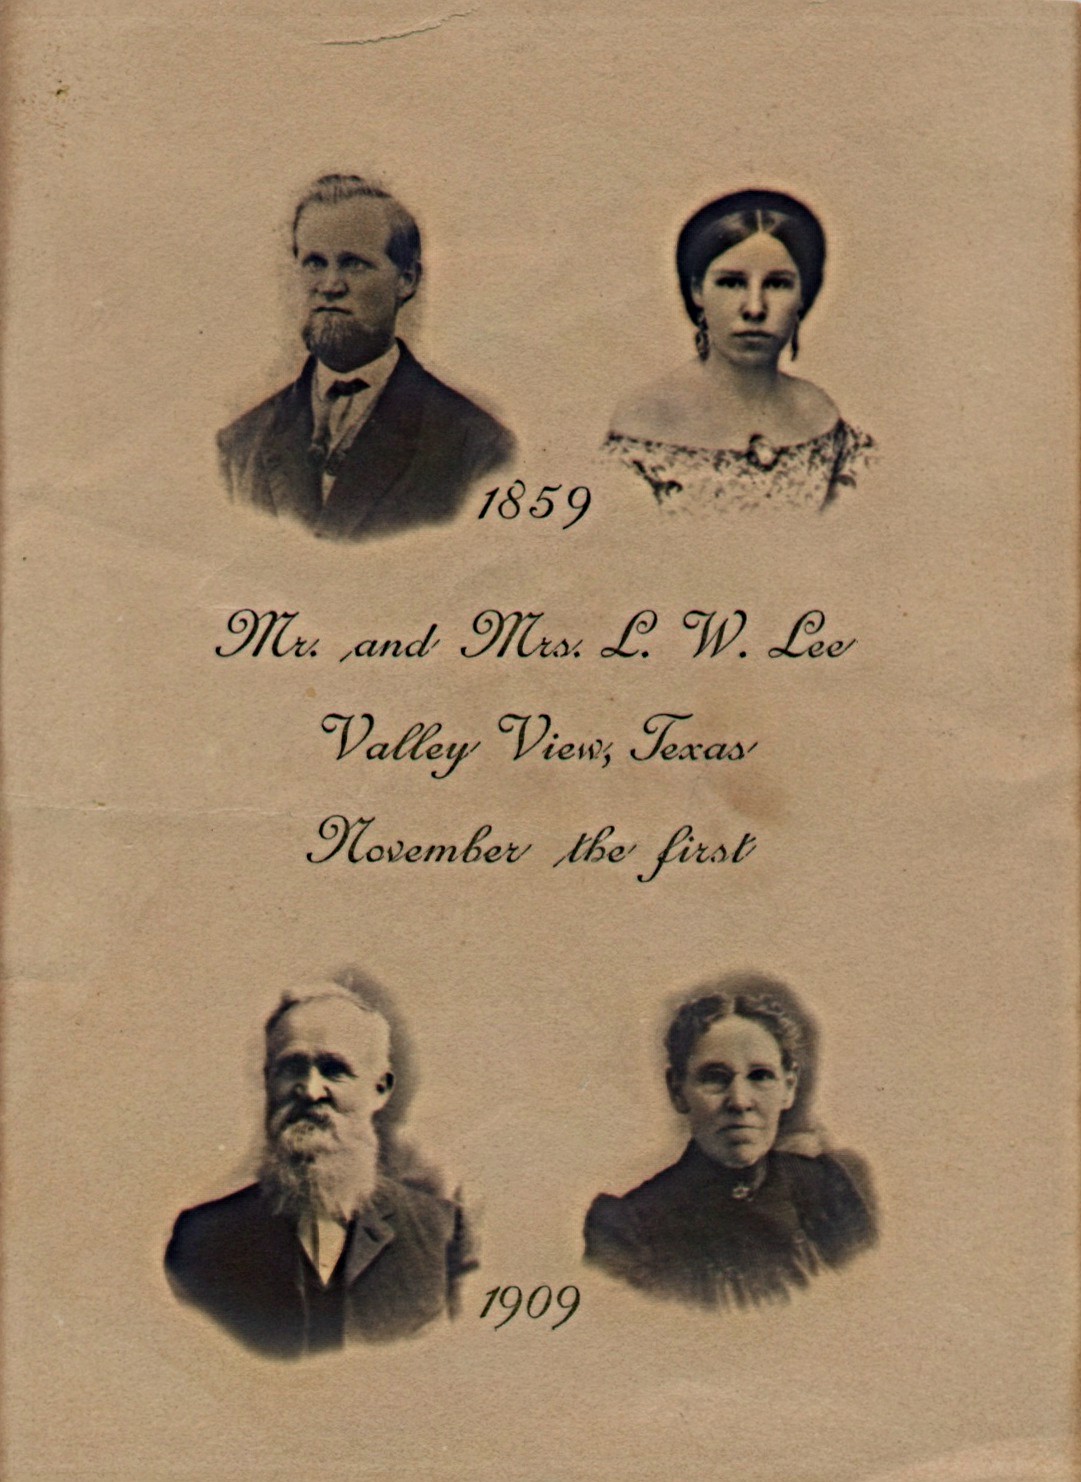 1859
Mr. and Mrs. L. W. Lee
Valley View, Texas
November the first
1909